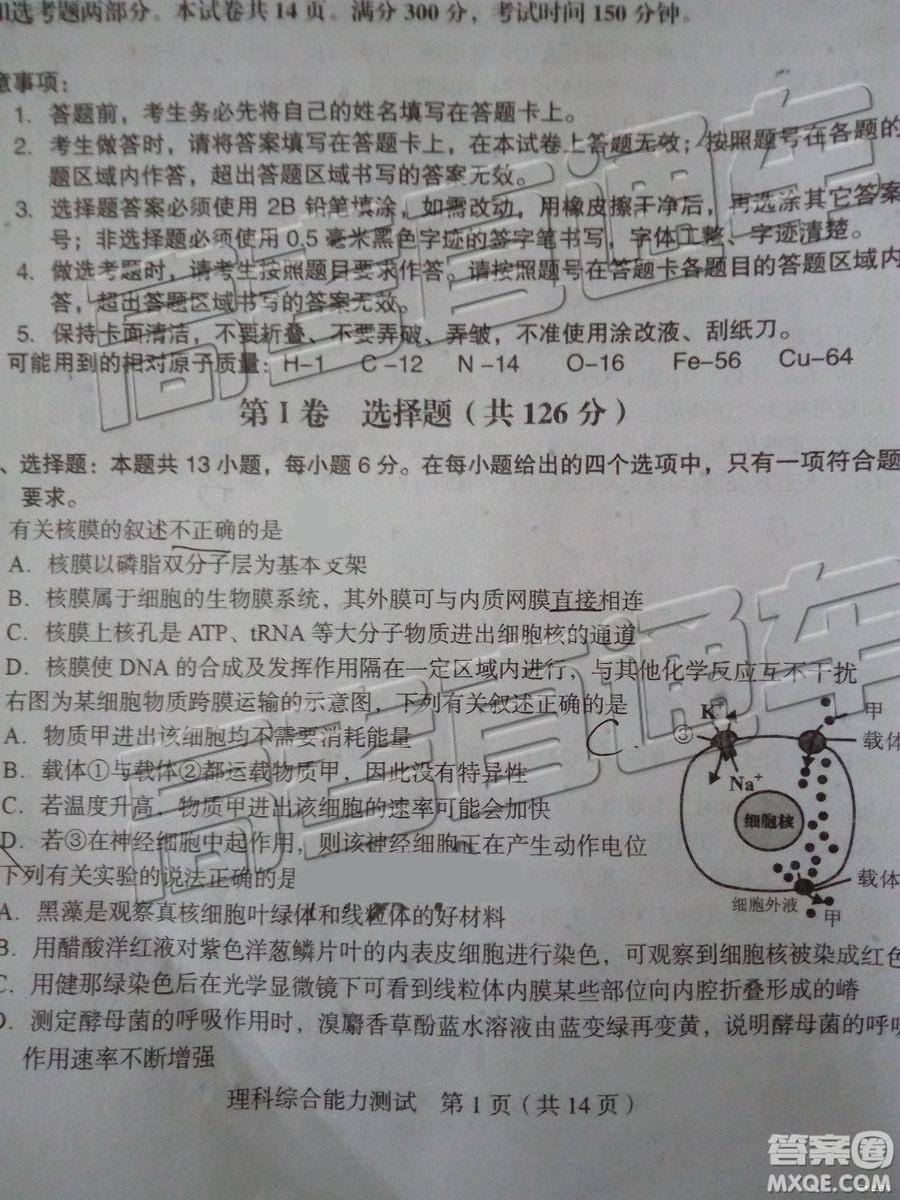 和选考题两部分。本试卷共14页。满分300分，考试时间150分钟。
意事项：
1. 答题前，考生务必先将自己的姓名填写在答题卡上。
2. 考生做答时，请将答案填写在答题卡上，在本试卷上答题无效；按照题号在各题的
题区域内作答，超出答题区域书写的答案无效。
3. 选择题答案必须使用 2B 铅笔填涂，如需改动，用橡皮擦干净后，再选涂其它答案
号；非选择题必须使用 0.5 毫米黑色字迹的签字笔书写，字体工整、字迹清楚。
4. 做选考题时，请考生按照题目要求作答。请按照题号在答题卡各题目的答题区域内
答，超出答题区域书写的答案无效。
5. 保持卡面清洁，不要折叠、不要弄破、弄皱，不准使用涂改液、刮纸刀。
可能用到的相对原子质量：H-1 C-12 N-14 O-16 Fe-56 Cu-64
第 I 卷 选择题（共 126 分）
、选择题：本题共 13 小题，每小题 6 分。在每小题给出的四个选项中，只有一项符合题
要求。
有关核膜的叙述不正确的是
A．核膜以磷脂双分子层为基本支架
B．核膜属于细胞的生物膜系统，其外膜可与内质网膜直接相连
C．核膜上核孔是 ATP、tRNA 等大分子物质进出细胞核的通道
D．核膜使 DNA 的合成及发挥作用隔在一定区域内进行，与其他化学反应互不干扰
右图为某细胞物质跨膜运输的示意图，下列有关叙述正确的是
C.
A．物质甲进出该细胞均不需要消耗能量
B．载体①与载体②都运载物质甲，因此没有特异性
C．若温度升高，物质甲进出该细胞的速率可能会加快
D．若③在神经细胞中起作用，则该神经细胞正在产生动作电位
K⁺
③
甲
载体
Na⁺
细胞核
载体
细胞外液
甲
下列有关实验的说法正确的是
A．黑藻是观察真核细胞叶绿体和线粒体的好材料
B．用醋酸洋红液对紫色洋葱鳞片叶的内表皮细胞进行染色，可观察到细胞核被染成红色
C．用健那绿染色后在光学显微镜下可看到线粒体内膜某些部位向内腔折叠形成的嵴
D．测定酵母菌的呼吸作用时，溴麝香草酚蓝水溶液由蓝变绿再变黄，说明酵母菌的呼吸
作用速率不断增强
理科综合能力测试 第 1 页（共 14 页）
高考直通车
高考直通车
答案圈
MXQE.COM